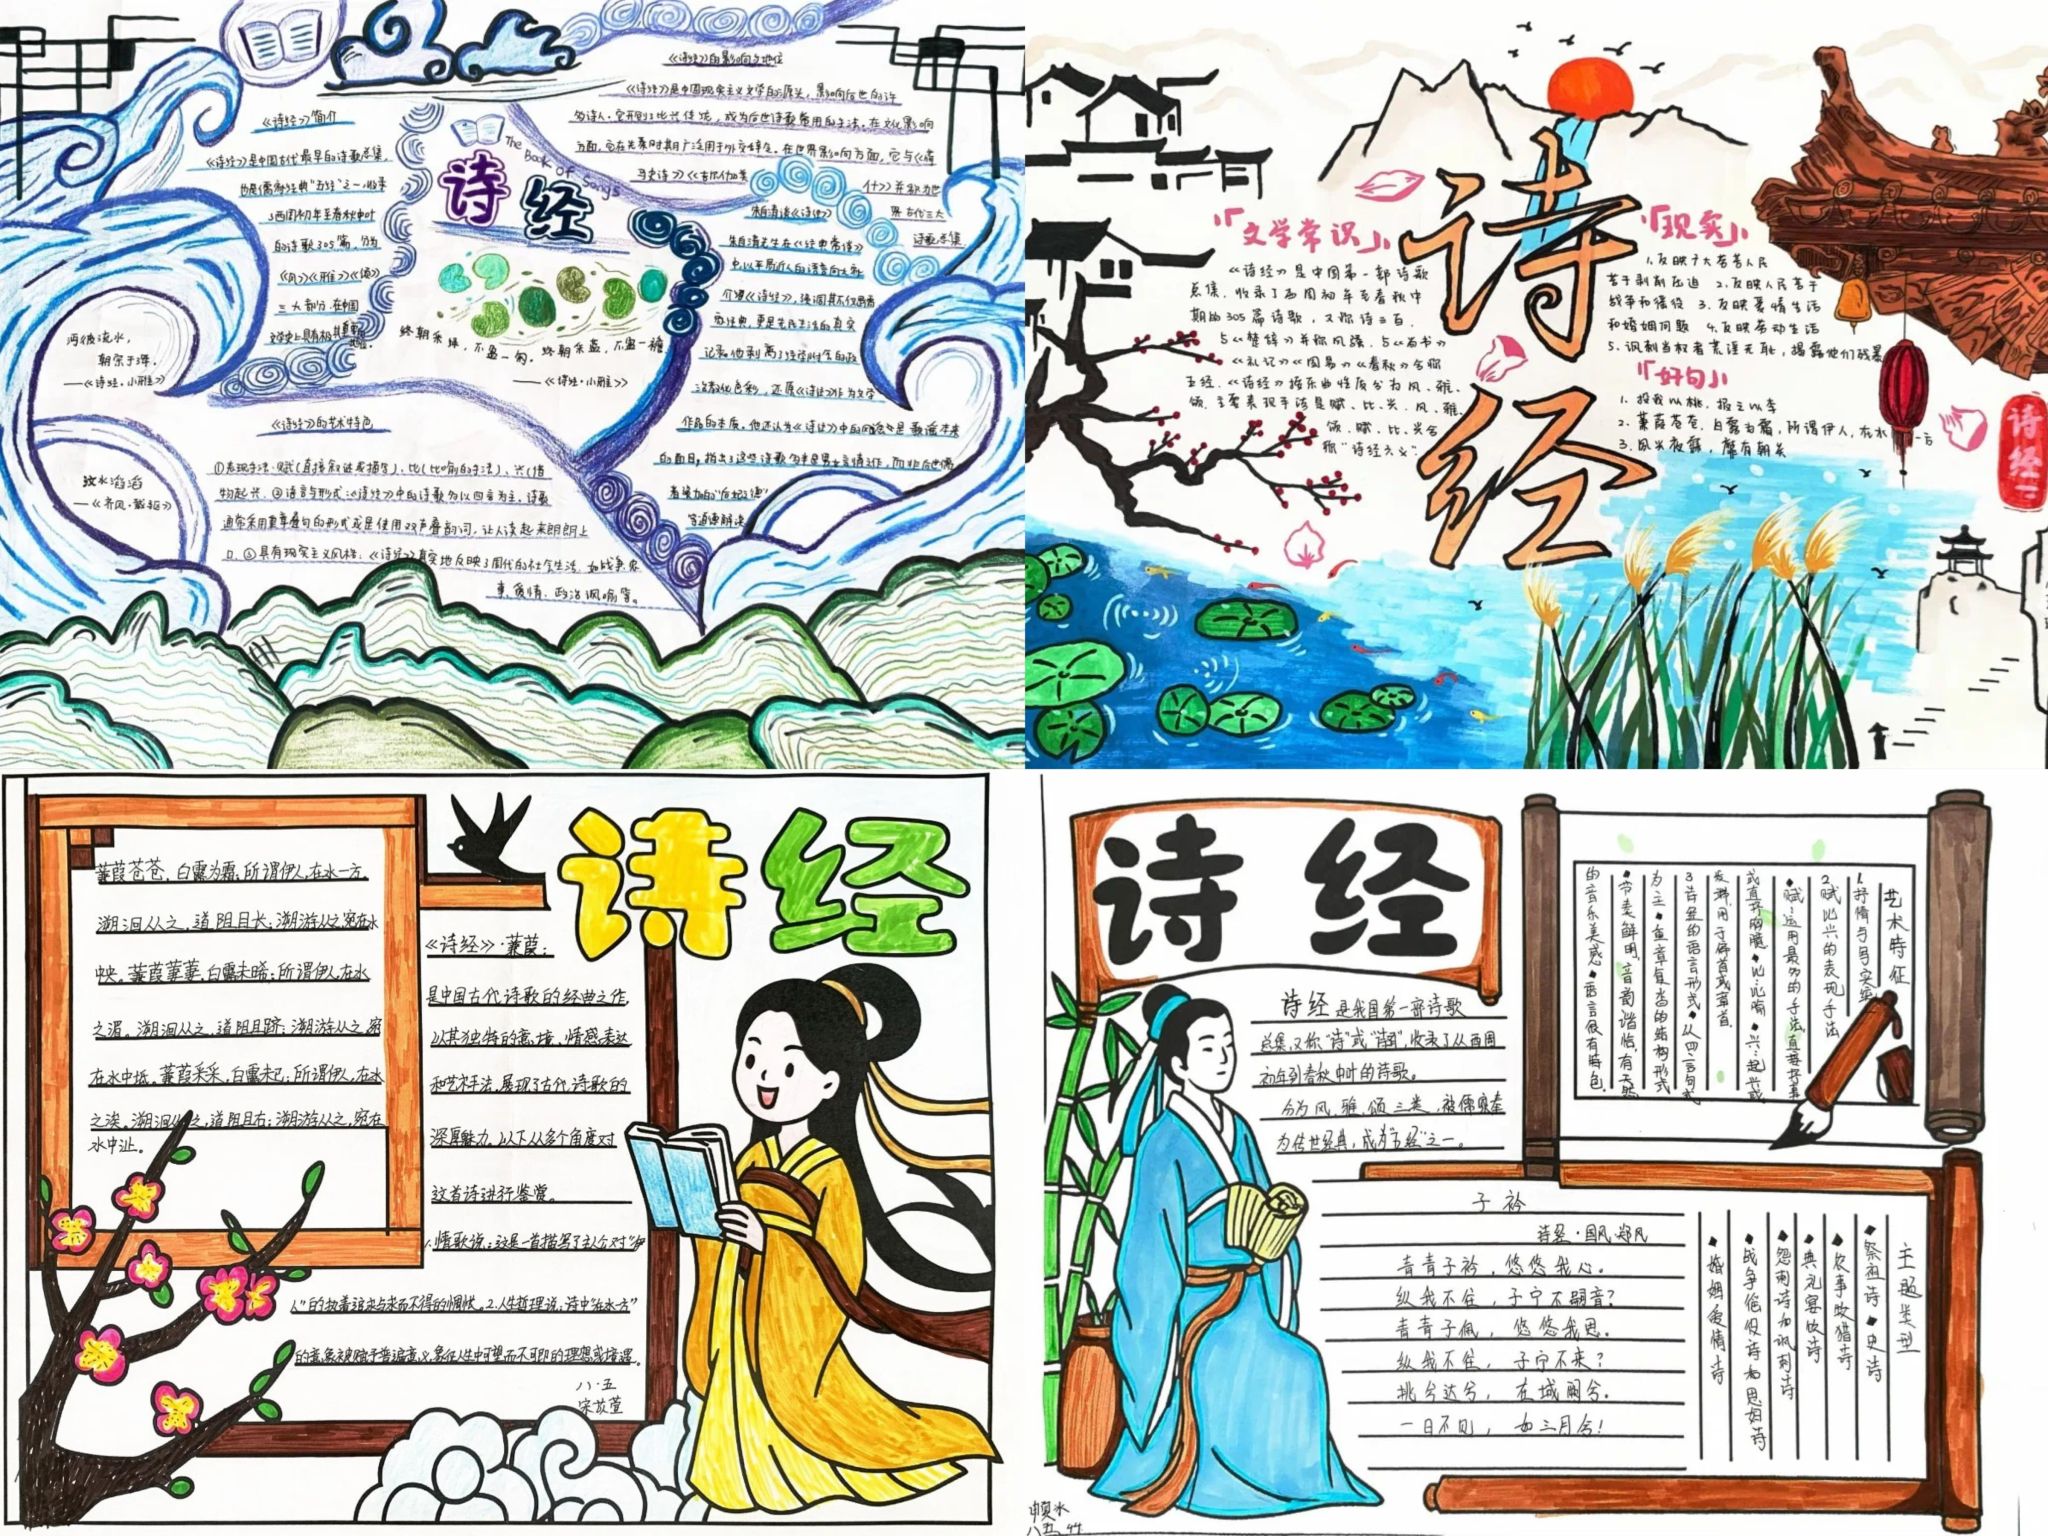 《诗经》简介
《诗经》是中国古代最早的诗歌总集,
也是儒家经典“五经”之一,收录
了西周初年至春秋中叶
的诗歌305篇,分为
《风》《雅》《颂》
三大部分,在中国
文学史上具有极其重要
地位。
The Book of Songs
诗经
终朝采绿,不盈一匊。终朝采蓝,不盈一襜。
——《诗经·小雅》
沔彼流水,
朝宗于海。
——《诗经·小雅》
汶水滔滔
——《齐风·载驱》
《诗经》的艺术特色
①表现手法:赋(直接叙述或描写)、比(比喻的手法)、兴(借
物起兴。②语言与形式:《诗经》中的诗歌多以四言为主,诗歌
通常采用重章叠句的形式或是使用双声叠韵词,让人读起来朗朗上
口。③具有现实主义风格:《诗经》真实地反映了周代的社会生活,如战争、农
事、爱情、政治讽喻等。
《诗经》的影响与地位
《诗经》是中国现实主义文学的源头,影响后世的许
多诗人。它开创了比兴传统,成为后世诗歌常用的手法。在文化影响
方面,它在先秦时期广泛用于外交辞令。在世界影响方面,它与《荷
马史诗》《吉尔伽美
什》并称为世
界古代三大
诗歌总集
朱自清谈《诗经》
朱自清先生在《经典常谈》
中,以平易近人的语言向大众
介绍《诗经》,强调其不仅是儒
家经典,更是先民生活的真实
记录。他剥离了经学附会的政
治教化色彩,还原《诗经》作为文学
作品的本质。他还认为《诗经》中的
的面目,指出了这些诗歌
「文学常识」
《诗经》是中国第一部诗歌
总集,收录了西周初年至春秋中
期的305篇诗歌,又称诗三百。
与《楚辞》并称风骚,与《尚书》
《礼记》《周易》《春秋》合称
五经。《诗经》按乐曲性质分为风、雅、
颂,主要表现手法是赋、比、兴。风、雅、
颂、赋、比、兴合
称“诗经六义”。
诗经
「现实」
1.反映广大劳苦人民
苦于剥削压迫 2.反映人民苦于
战争和徭役 3.反映爱情生活
和婚姻问题 4.反映劳动生活
5.讽刺当权者荒淫无耻,揭露他们残暴
「好句」
1.投我以桃,报之以李
2.蒹葭苍苍,白露为霜,所谓伊人,在水一方
3.夙兴夜寐,靡有朝矣
诗经
蒹葭苍苍,白露为霜,所谓伊人,在水一方。
溯洄从之,道阻且长;溯游从之,宛在水
中央。蒹葭萋萋,白露未晞;所谓伊人,在水
之湄。溯洄从之,道阻且跻;溯游从之,宛
在水中坻。蒹葭采采,白露未已;所谓伊人,在水
之涘。溯洄从之,道阻且右;溯游从之,宛在
水中沚。
诗经
《诗经》·蒹葭:
是中国古代诗歌的经典之作,
以其独特的意境、情感表达
和艺术手法,展现了古代诗歌的
深厚魅力。以下从多个角度对
这首诗进行鉴赏。
1.情歌说:这是一首描写了主人公对“伊
人”的执着追求与求而不得的惆怅。2.人生哲理说:诗中“在水一方”
的意象被赋予普遍意义,象征人生中可望而不可即的理想或境遇。
八·五
诗经
诗经是我国第一部诗歌
总集,又称“诗”或“诗三百”,收录了从西周
初年到春秋中叶的诗歌。
分为风、雅、颂三类,被儒家奉
为传世经典,成为“五经”之一。
艺术特征
1.抒情与写实
2.赋比兴的表现手法
◆赋:运用最多的手法,直接抒事
或直抒胸臆◆比:比喻◆兴:起兴或
发端,用于篇首或章首。
3.诗经的语言形式◆以四言句式
为主◆重章复沓的结构形式
◆节奏鲜明,音韵谐恰,有天然
的音乐美感◆语言很有特色。
子衿
诗经·国风·郑风
青青子衿,悠悠我心。
纵我不往,子宁不嗣音?
青青子佩,悠悠我思。
纵我不往,子宁不来?
挑兮达兮,在城阙兮。
一日不见,如三月兮!
主题类型
◆祭祖诗◆史诗
◆农事畋猎诗
◆典礼宴饮诗
◆怨刺诗和讽刺诗
◆战争徭役诗和思妇诗
◆婚姻爱情诗
八五 44